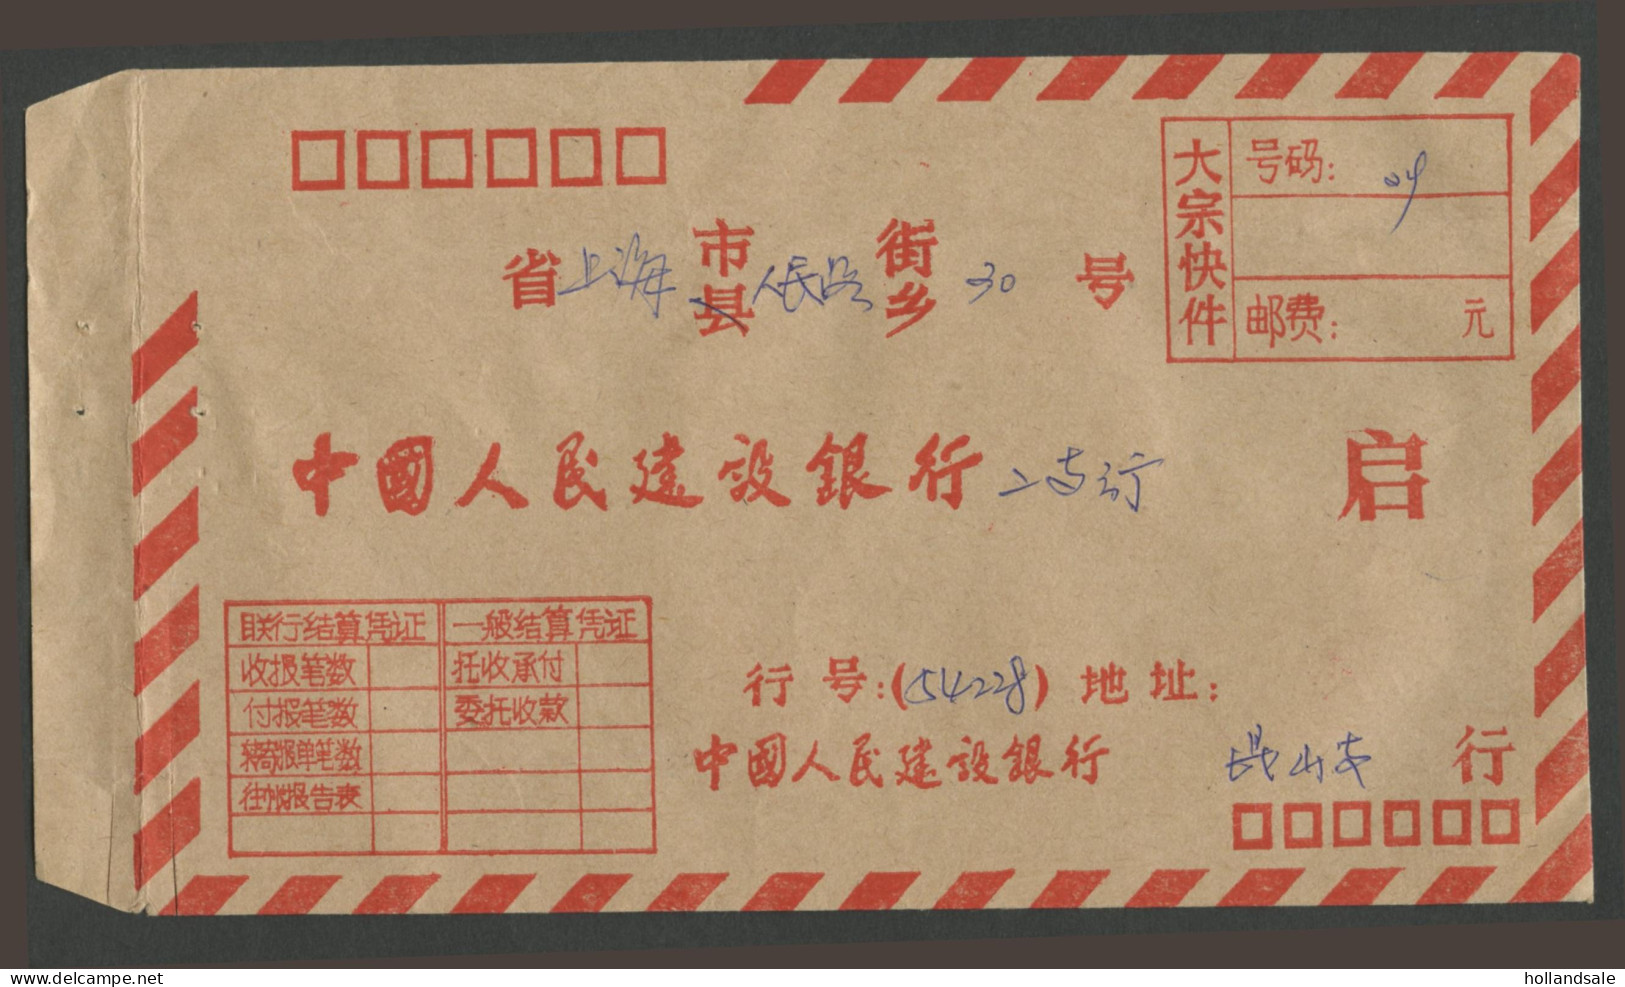 □□□□□□
大宗快件
号码: 09
邮费: 元
省 上海 市县 人民路 街乡 30 号
中國人民建設銀行 二支行 启
联行结算凭证 一般结算凭证
收报笔数 托收承付
付报笔数 委托收款
转劃报单笔数
往帐报告表
行号:(54228) 地址:
中國人民建設銀行 昆山支 行
□□□□□□
www.delcampe.net
hollandsale